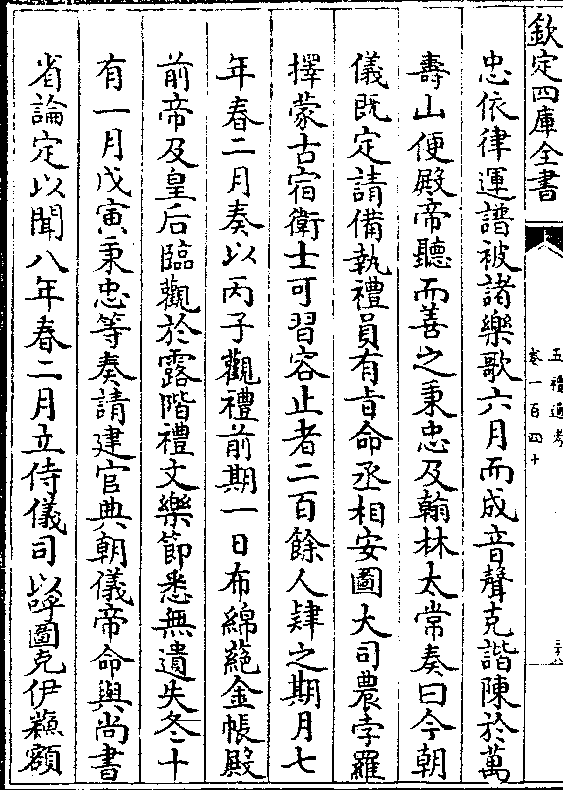 欽定四庫全書
五禮通考
卷一百四十
忠依律運譜被諸樂歌六月而成音聲克諧陳於萬
壽山便殿帝聽而善之秉忠及翰林太常奏曰今朝
儀既定請備執禮員有㫖命丞相安圖大司農孛羅
擇蒙古宿衛士可習容止者二百餘人肄之期月七
年春二月奏以丙子觀禮前期一日布綿蕝金帳殿
前帝及皇后臨觀於露階禮文樂節悉無遺失冬十
有一月戊寅秉忠等奏請建官典朝儀帝命與尚書
省論定以聞八年春二月立侍儀司以呼圖克伊蘓額